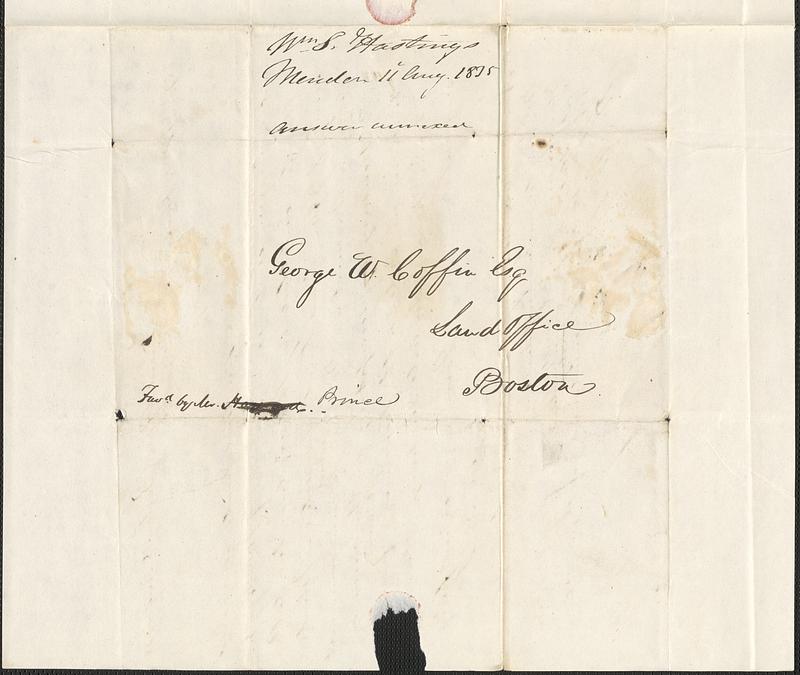 Wm S. Hastings
Mendon 11 Aug. 1835
answer annexed
George W. Coffin Esq
Land Office
Boston.
Favd by Mr. Prince